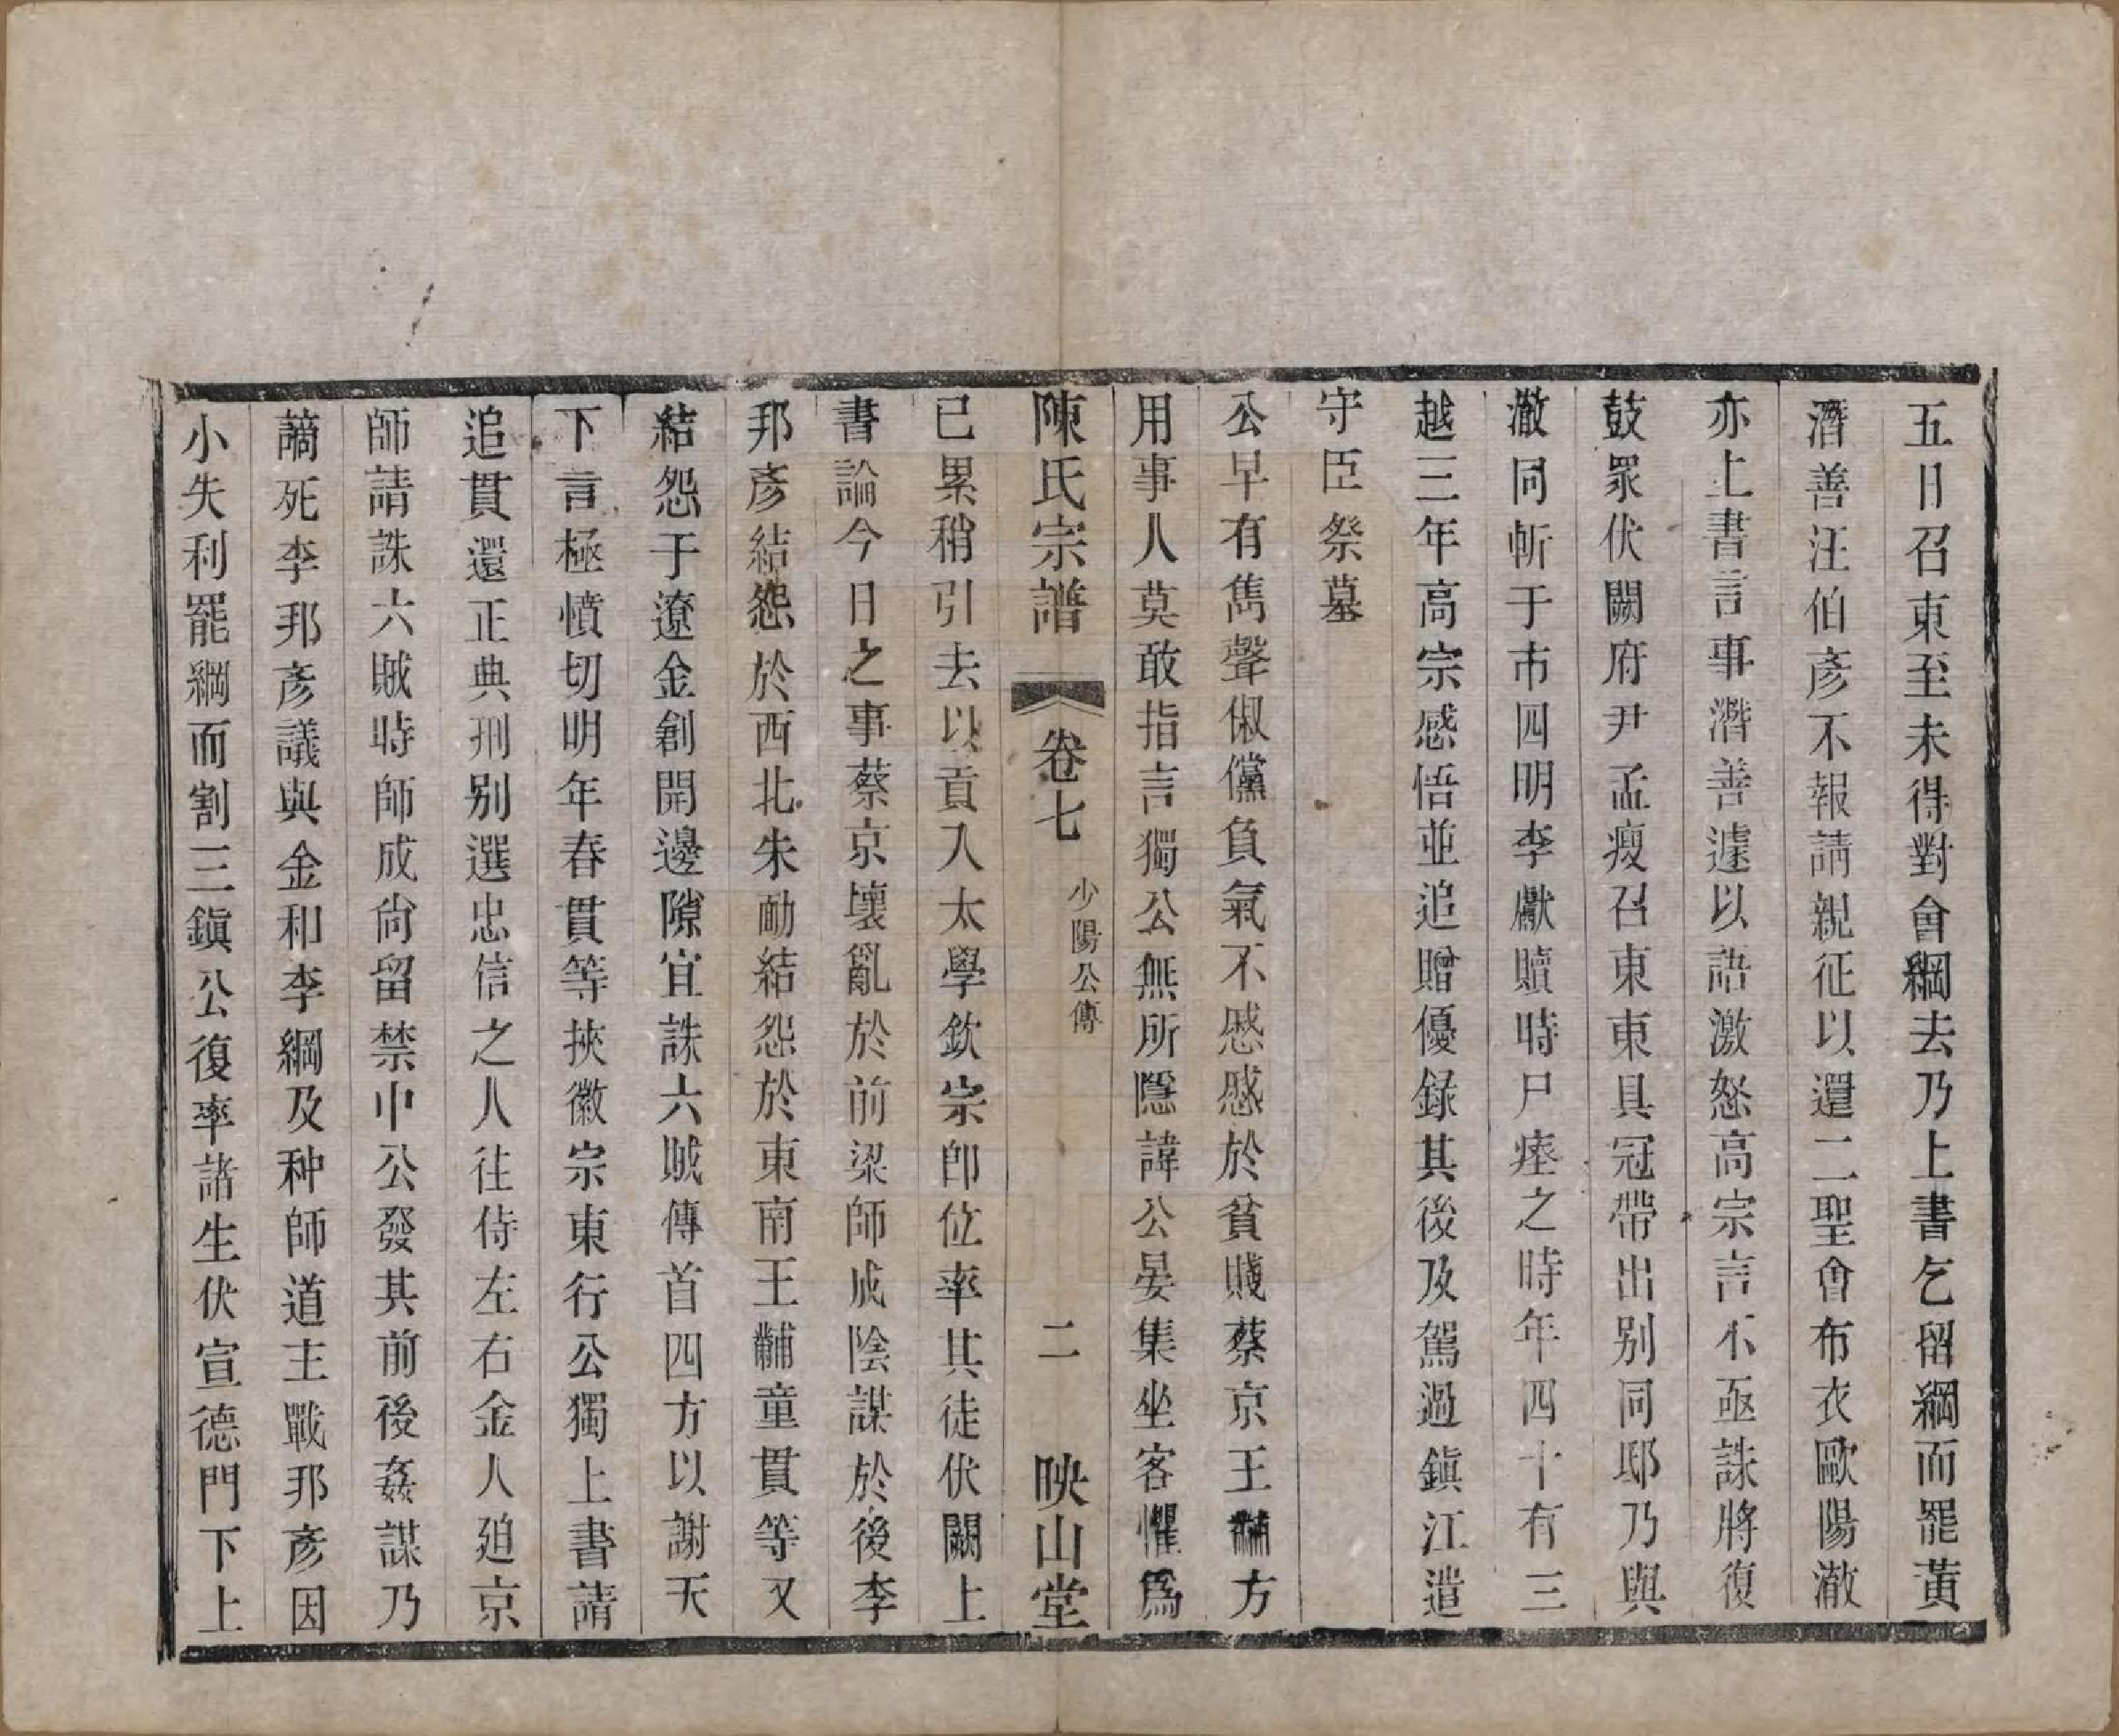 五日召東至未得對會綱去乃上書乞留綱而罷黃
潛善汪伯彥不報請親征以還二聖會布衣歐陽澈
亦上書言事潛善遽以語激怒高宗言不亟誅將復
鼓眾伏闕府尹孟瘦召東東具冠帶出别同邸乃與
澈同斬于市四明李猷贖時尸瘞之時年四十有三
越三年高宗感悟並追贈優錄其後及駕過鎮江遣
守臣祭墓
公早有雋聲俶儻負氣不慼慼於貧賤蔡京王黼方
用事人莫敢指言獨公無所隱諱公晏集坐客懼爲
陳氏宗譜 卷七 少陽公傳 二 映山堂
已累稍引去以貢入太學欽宗卽位率其徒伏闕上
書論今日之事蔡京壞亂於前梁師成陰謀於後李
邦彥結怨於西北朱勔結怨於東南王黼童貫等又
結怨于遼金創開邊隙宜誅六賊傳首四方以謝天
下言極憤切明年春貫等挾徽宗東行公獨上書請
追貫還正典刑别選忠信之人往侍左右金人廹京
師請誅六賊時師成尙留禁中公發其前後姦謀乃
謫死李邦彥議與金和李綱及种師道主戰邦彥因
小失利罷綱而割三鎮公復率諸生伏宣德門下上